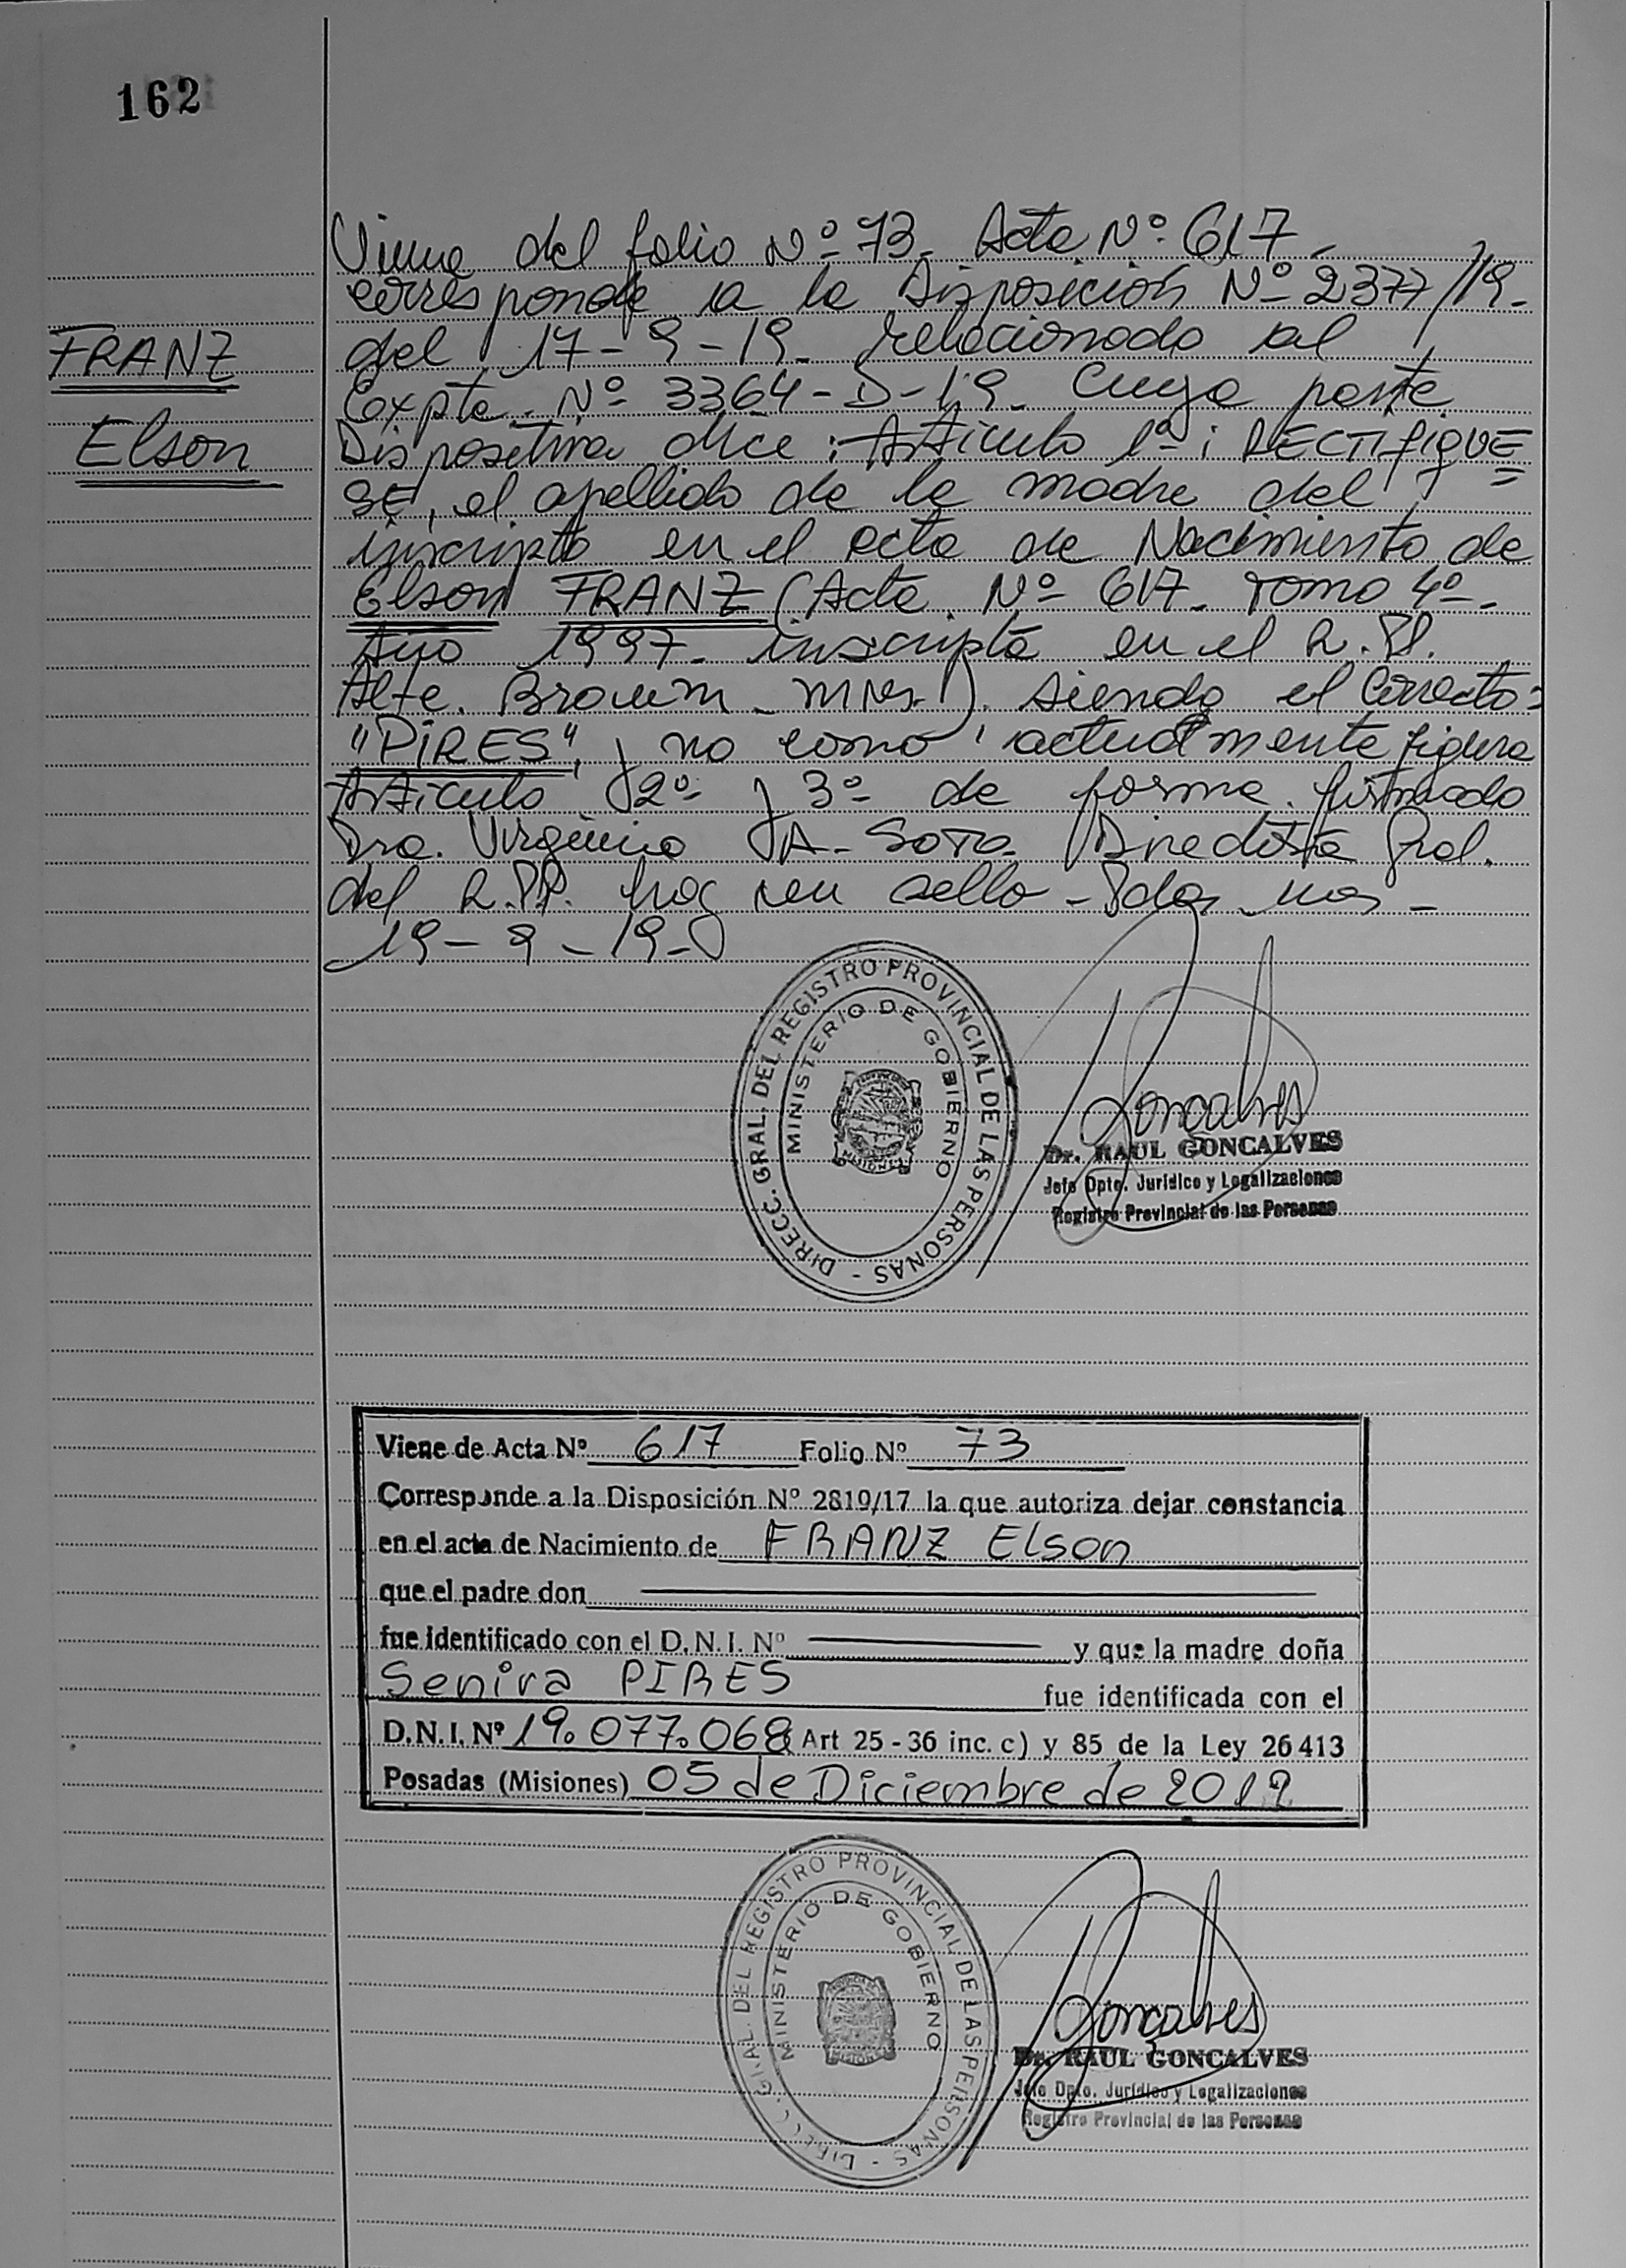 162
Viene del folio Nº 73. Acta Nº 617.
corresponde a la Disposición Nº 2377/19.
FRANZ
del 17-9-19. relacionado al
Expte. Nº 3364-D-19. Cuya parte
Elson
Dispositiva dice: Artículo 1º: RECTIFIQUE=
SE, el apellido de la madre del
inscripto en el acta de Nacimiento de
Elson FRANZ (Acta Nº 617. Tomo 4º-
Año 1997- inscripta en el R.P.P.
Alte. Brown - Mnes.). siendo el correcto:
"PIRES", y no como actualmente figura
Artículo 2º y 3º de forma. firmado
Dra. Virginia A. Soto Directora Gral.
del R.P.P. hay un sello - Pdas, Mnes -
19-9-19-
DIRECC. GRAL. DEL REGISTRO PROVINCIAL DE LAS PERSONAS -
MINISTERIO DE GOBIERNO
MISIONES
Goncalves
Dr. RAUL GONCALVES
Jefe Dpto. Jurídico y Legalizaciones
Registro Provincial de las Personas
Viene de Acta Nº 617 Folio Nº 73
Corresponde a la Disposición Nº 2819/17 la que autoriza dejar constancia
en el acta de Nacimiento de FRANZ Elson
que el padre don
fue identificado con el D.N.I. Nº y que la madre doña
Senira PIRES fue identificada con el
D.N.I. Nº 19.077.068 Art 25 - 36 inc. c) y 85 de la Ley 26413
Posadas (Misiones) 05 de Diciembre de 2019
DIRECC. GRAL. DEL REGISTRO PROVINCIAL DE LAS PERSONAS -
MINISTERIO DE GOBIERNO
Gonçalves
Dr. RAUL GONCALVES
Jefe Dpto. Jurídico y Legalizaciones
Registro Provincial de las Personas